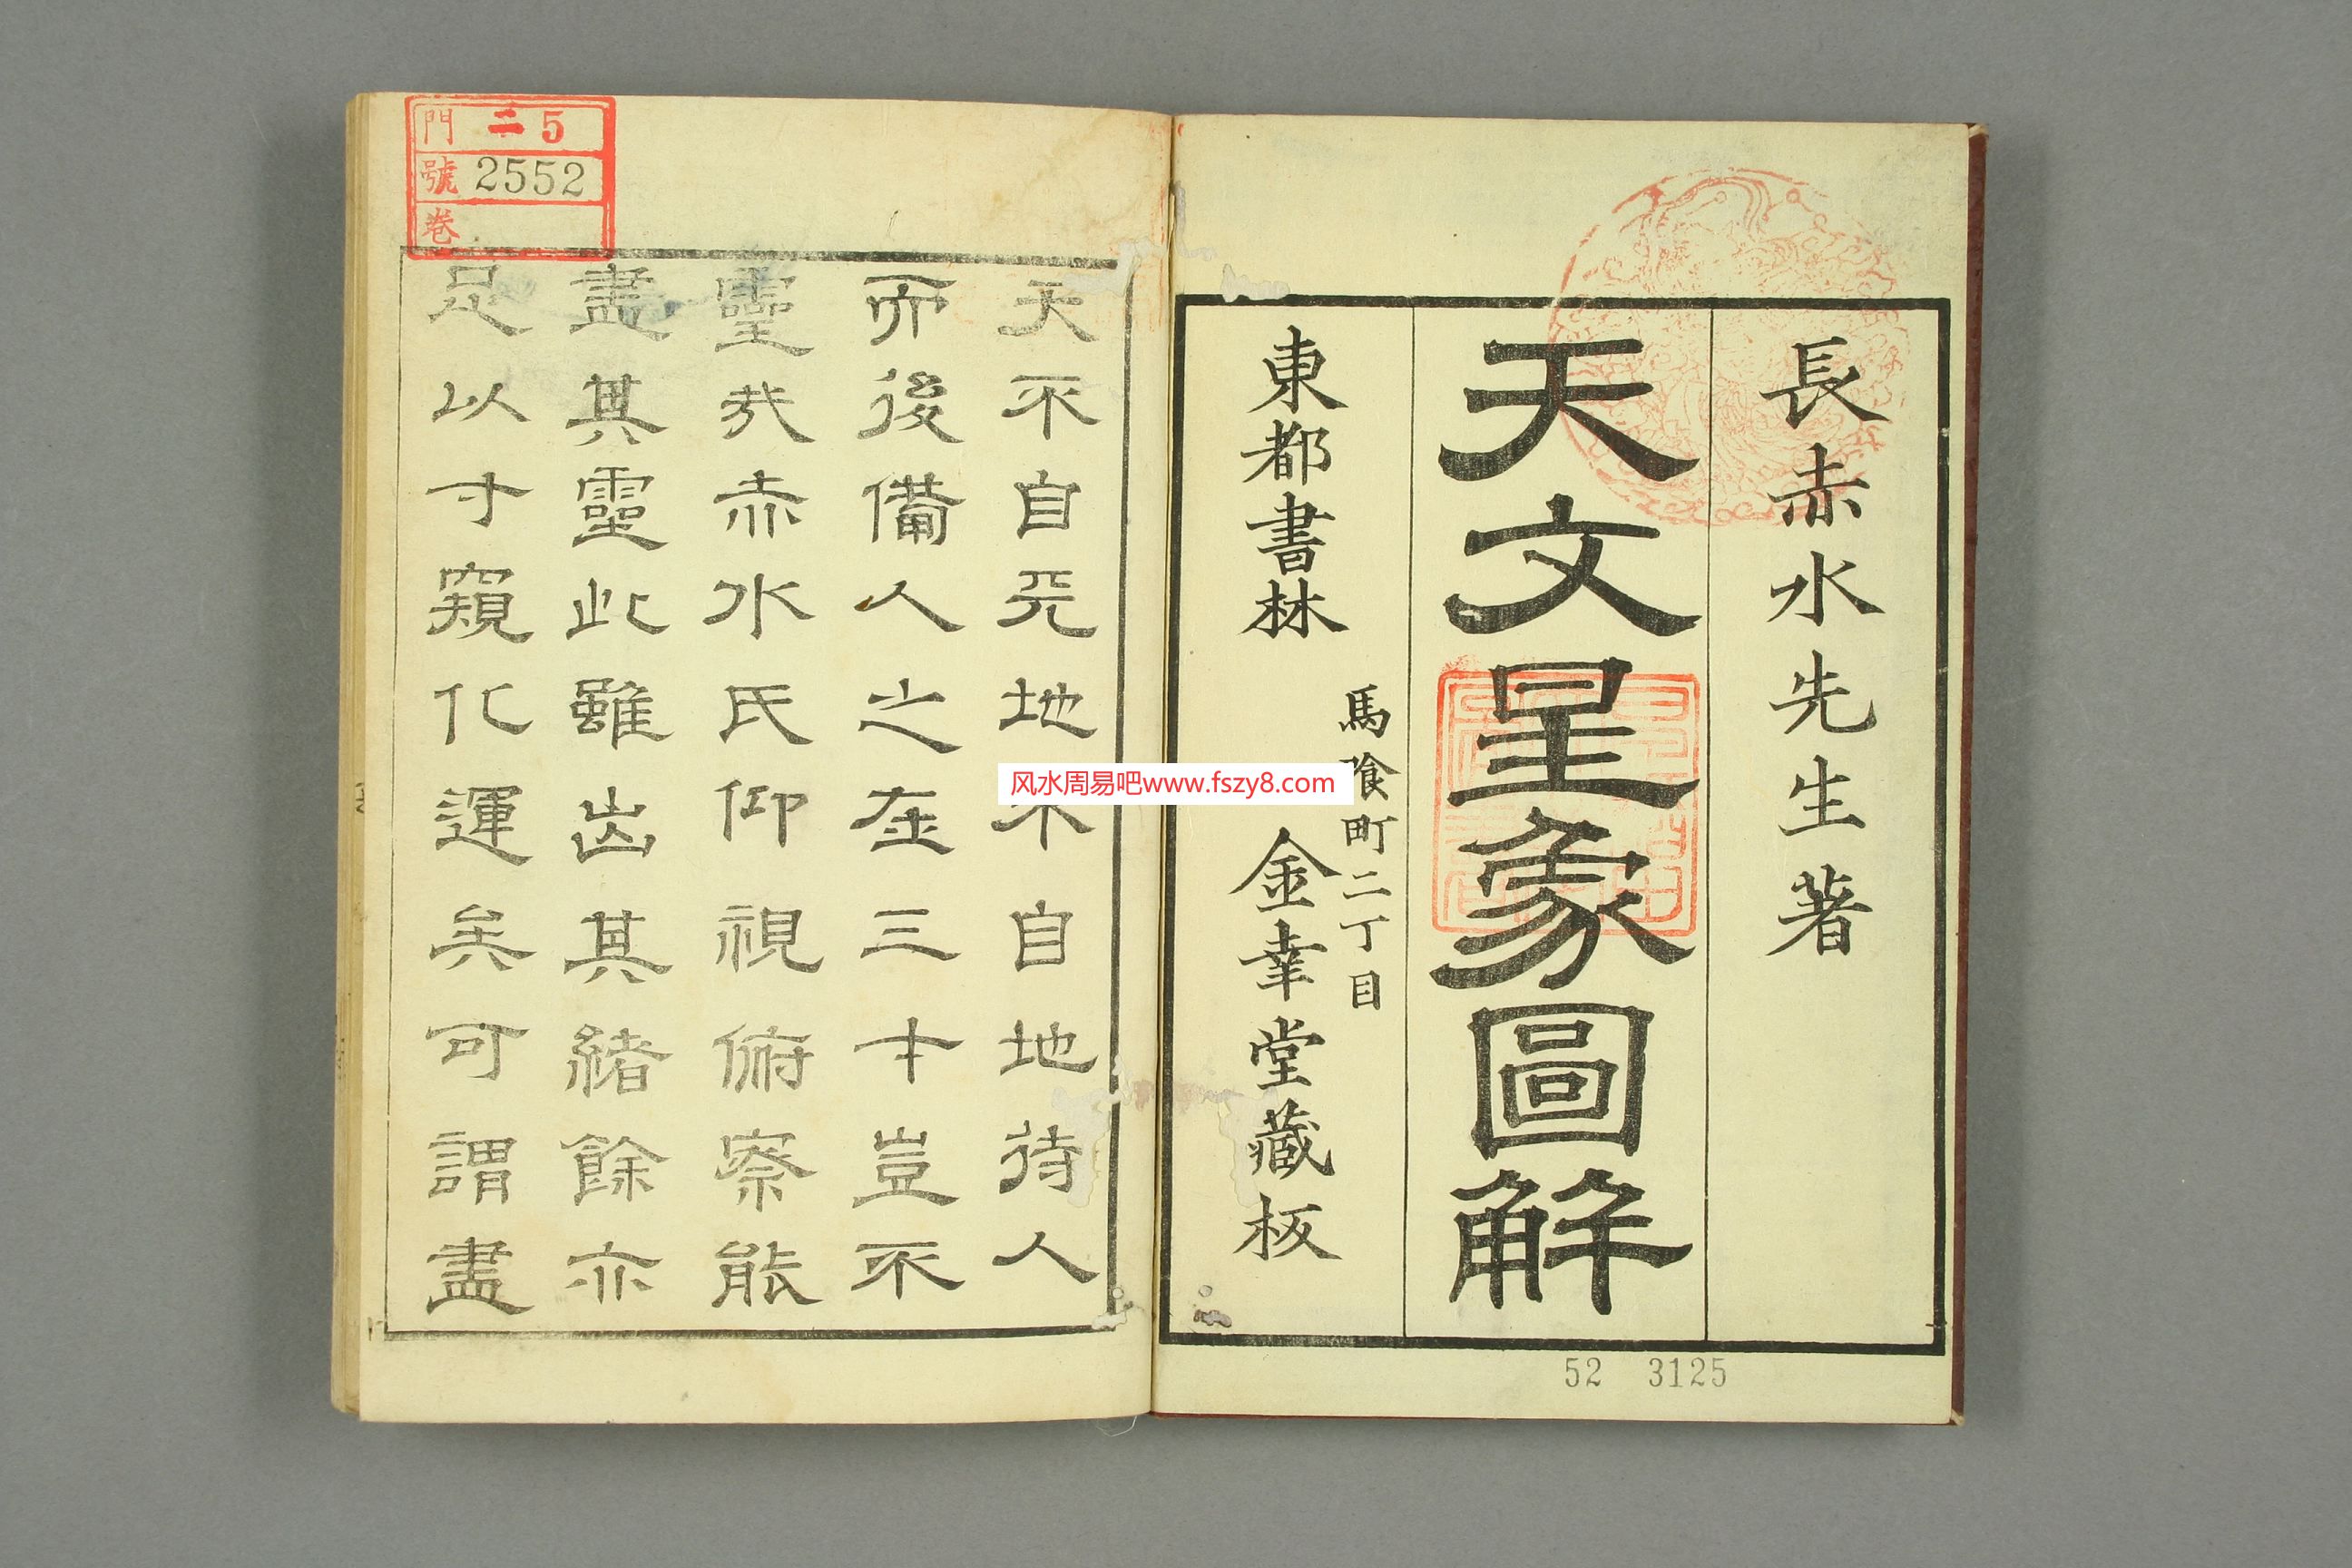 長赤水先生著
天文星象圖解
東都書林
馬喰町二丁目
金幸堂藏板
52 3125
門 二5
號 2552
卷
天不自天地不自地待人
而後備人之在三才豈不
靈哉赤水氏仰視俯察能
盡其靈此雖出其緒餘亦
足以寸窺化運矣可謂盡
风水周易吧www.fszy8.com